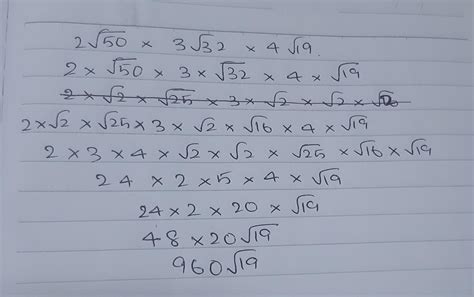 2√50 × 3√32 × 4√19.
2 × √50 × 3 × √32 × 4 × √19
2 × √2 × √25 × 3 × √2 × √2 ×
2×√2 × √25 × 3 × √2 × √16 × 4 × √19
2 × 3 × 4 × √2 × √2 × √25 × √16 × √19
24 × 2 × 5 × 4 × √19
24 × 2 × 20 × √19
48 × 20√19
960√19